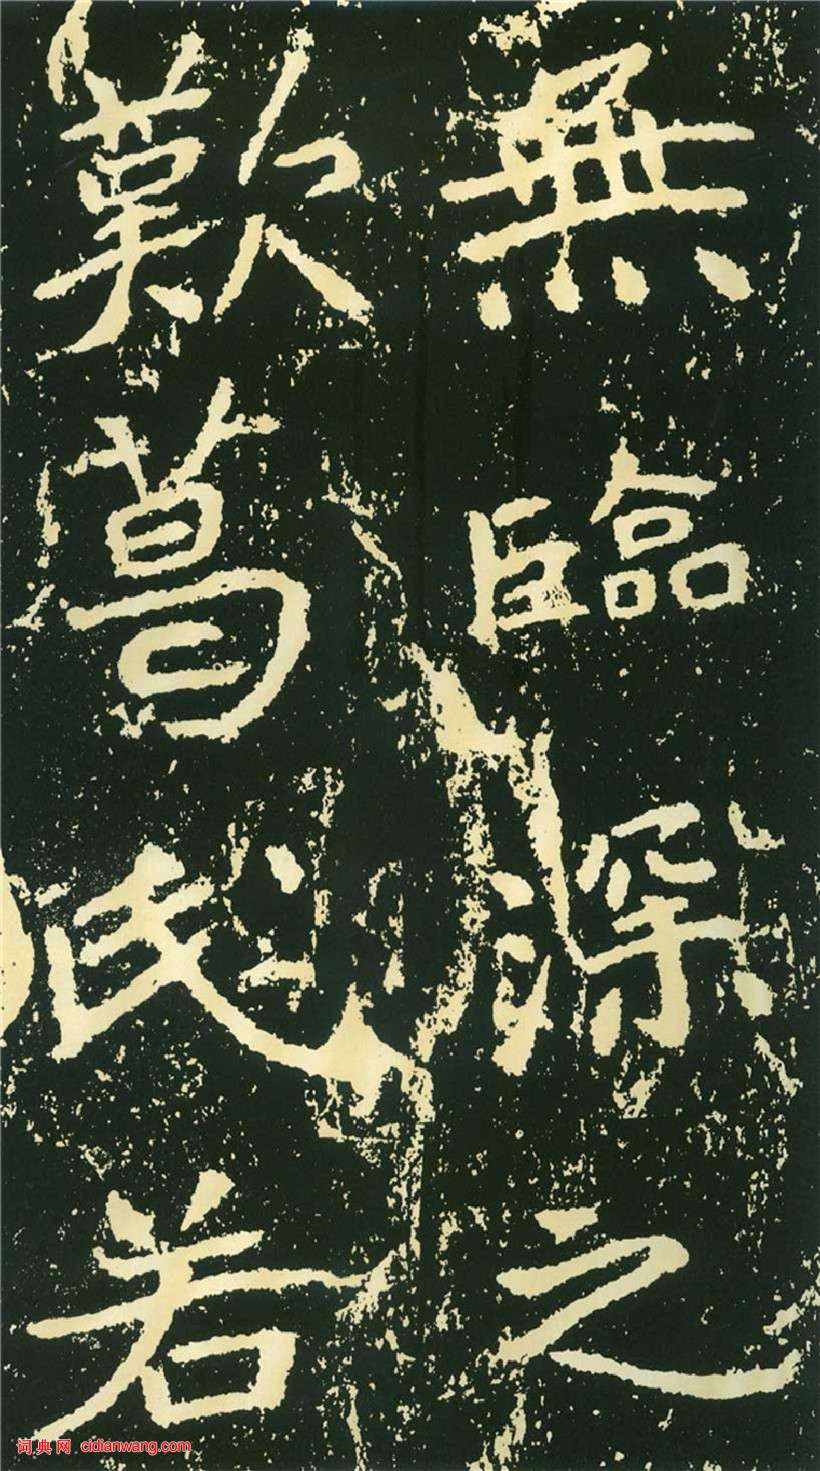 無臨深之
歎葛氏若
词典网 cidianwang.com